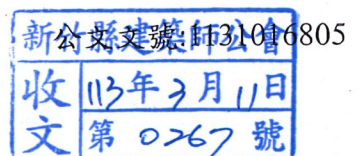 公文文號:1131016805
新竹縣建築師公會
收文
113年3月11日
第 0267 號